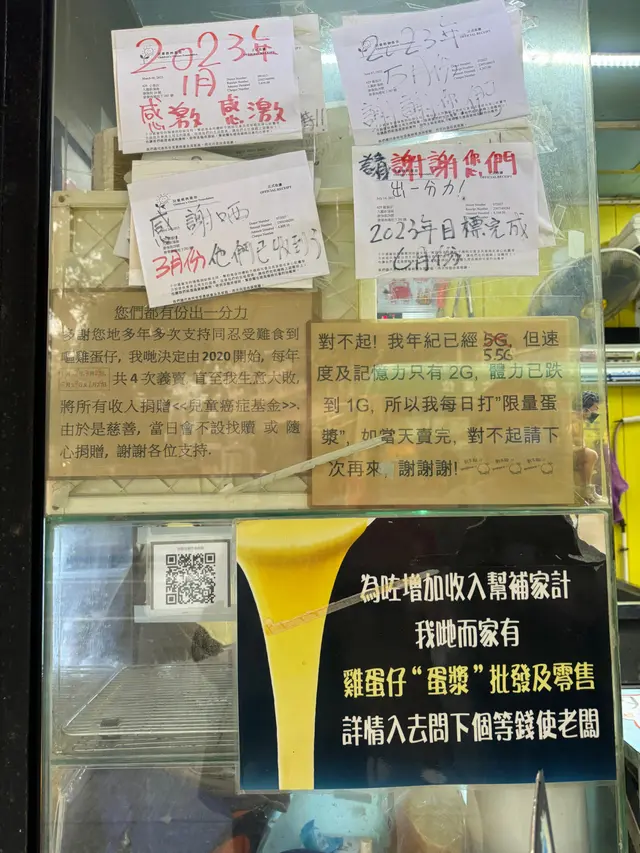 2023年
1月
感激 感激
2023年
OFFICIAL RECEIPT
感謝晒
3月份他們已收到
謝謝您們
出一分力!
2023年目標完成
6月份
您們都有份出一分力
多謝您地多年多次支持同忍受難食到
嘔雞蛋仔, 我哋決定由 2020 開始, 每年
共 4 次義賣, 直至我生意大敗,
將所有收入捐贈<<兒童癌症基金>>.
由於是慈善, 當日會不設找贖 或 隨
心捐贈, 謝謝各位支持.
對不起! 我年紀已經 5G, 但速
5.5G
度及記憶力只有 2G, 體力已跌
到 1G, 所以我每日打"限量蛋
漿", 如當天賣完, 對不起請下
次再來, 謝謝謝!
為咗增加收入幫補家計
我哋而家有
雞蛋仔“蛋漿”批發及零售
詳情入去問下個等錢使老闆